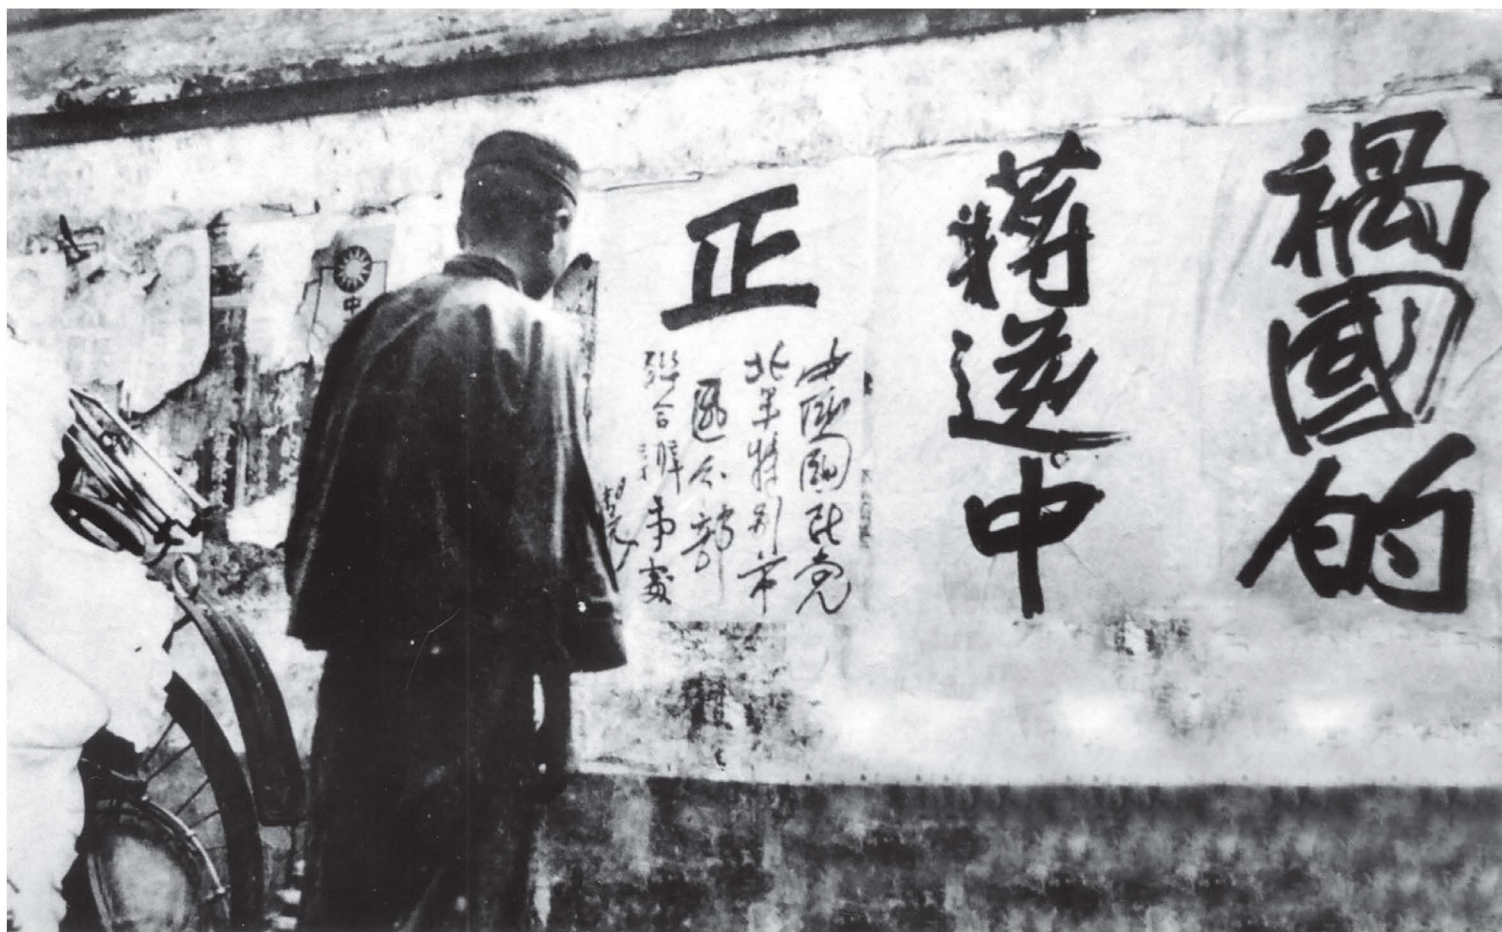 禍國的
蔣逆中
正
中國國民党
北平特别市
區分部
聯合辦事處
中